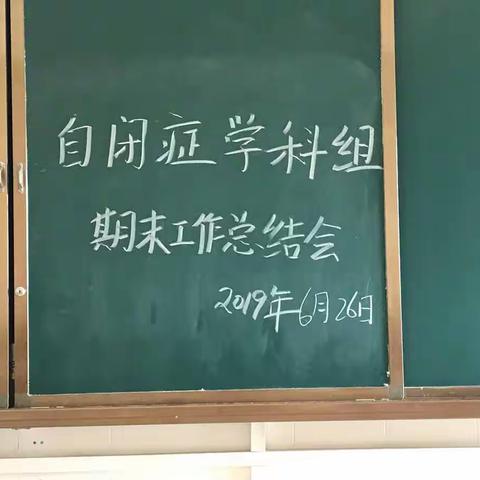 自闭症学科组
期末工作总结会
2019年6月26日